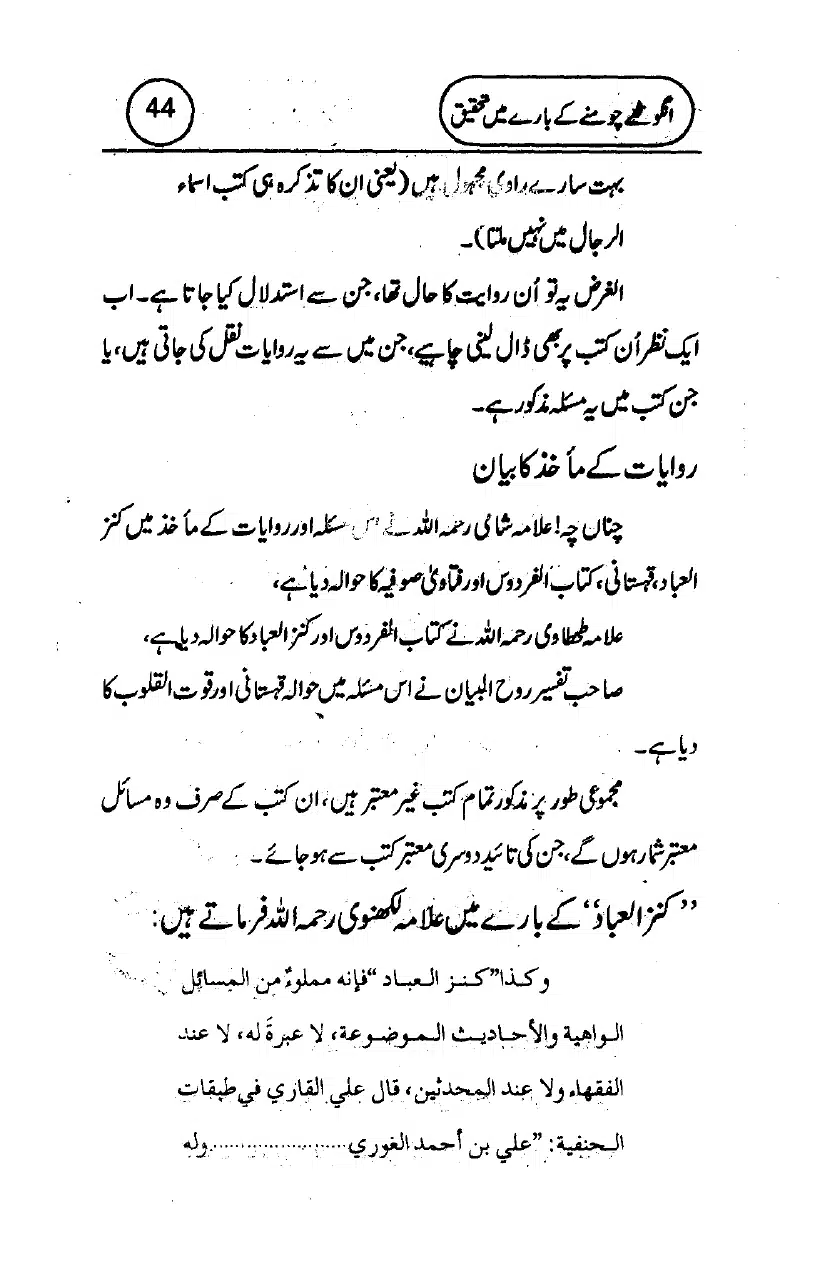 انگوٹھے چومنے کے بارے میں تحقیق
44
بہت سارے راوی مجہول ہیں (یعنی ان کا تذکرہ ہی کتب اسماء
الرجال میں نہیں ملتا)۔
الغرض یہ تو اُن روایت کا حال تھا، جن سے استدلال کیا جاتا ہے۔ اب
ایک نظر اُن کتب پر بھی ڈال لینی چاہیے، جن میں سے یہ روایات نقل کی جاتی ہیں، یا
جن کتب میں یہ مسئلہ مذکور ہے۔
روایات کے مأخذ کا بیان
چناں چہ! علامہ شامی رحمہ اللہ نے اس مسئلہ اور روایات کے مأخذ میں کنز
العباد، قہستانی، کتاب الفردوس اور فتاویٰ صوفیہ کا حوالہ دیا ہے،
علامہ طحطاوی رحمہ اللہ نے کتاب الفردوس اور کنز العباد کا حوالہ دیا ہے،
صاحب تفسیر روح البیان نے اس مسئلہ میں حوالہ قہستانی اور قوت القلوب کا
دیا ہے۔
مجموعی طور پر مذکور تمام کتب غیر معتبر ہیں، ان کتب کے صرف وہ مسائل
معتبر شمار ہوں گے، جن کی تائید دوسری معتبر کتب سے ہو جائے۔
”کنز العباد“ کے بارے میں علامہ لکھنوی رحمہ اللہ فرماتے ہیں:
وكذا ”كنز العباد“ فإنه مملوءٌ من المسائل
الواهية والأحاديث الموضوعة، لا عبرةَ له، لا عند
الفقهاء ولا عند المحدثين، قال علي القاري في طبقات
الحنفية: ”علي بن أحمد الغوري......................وله